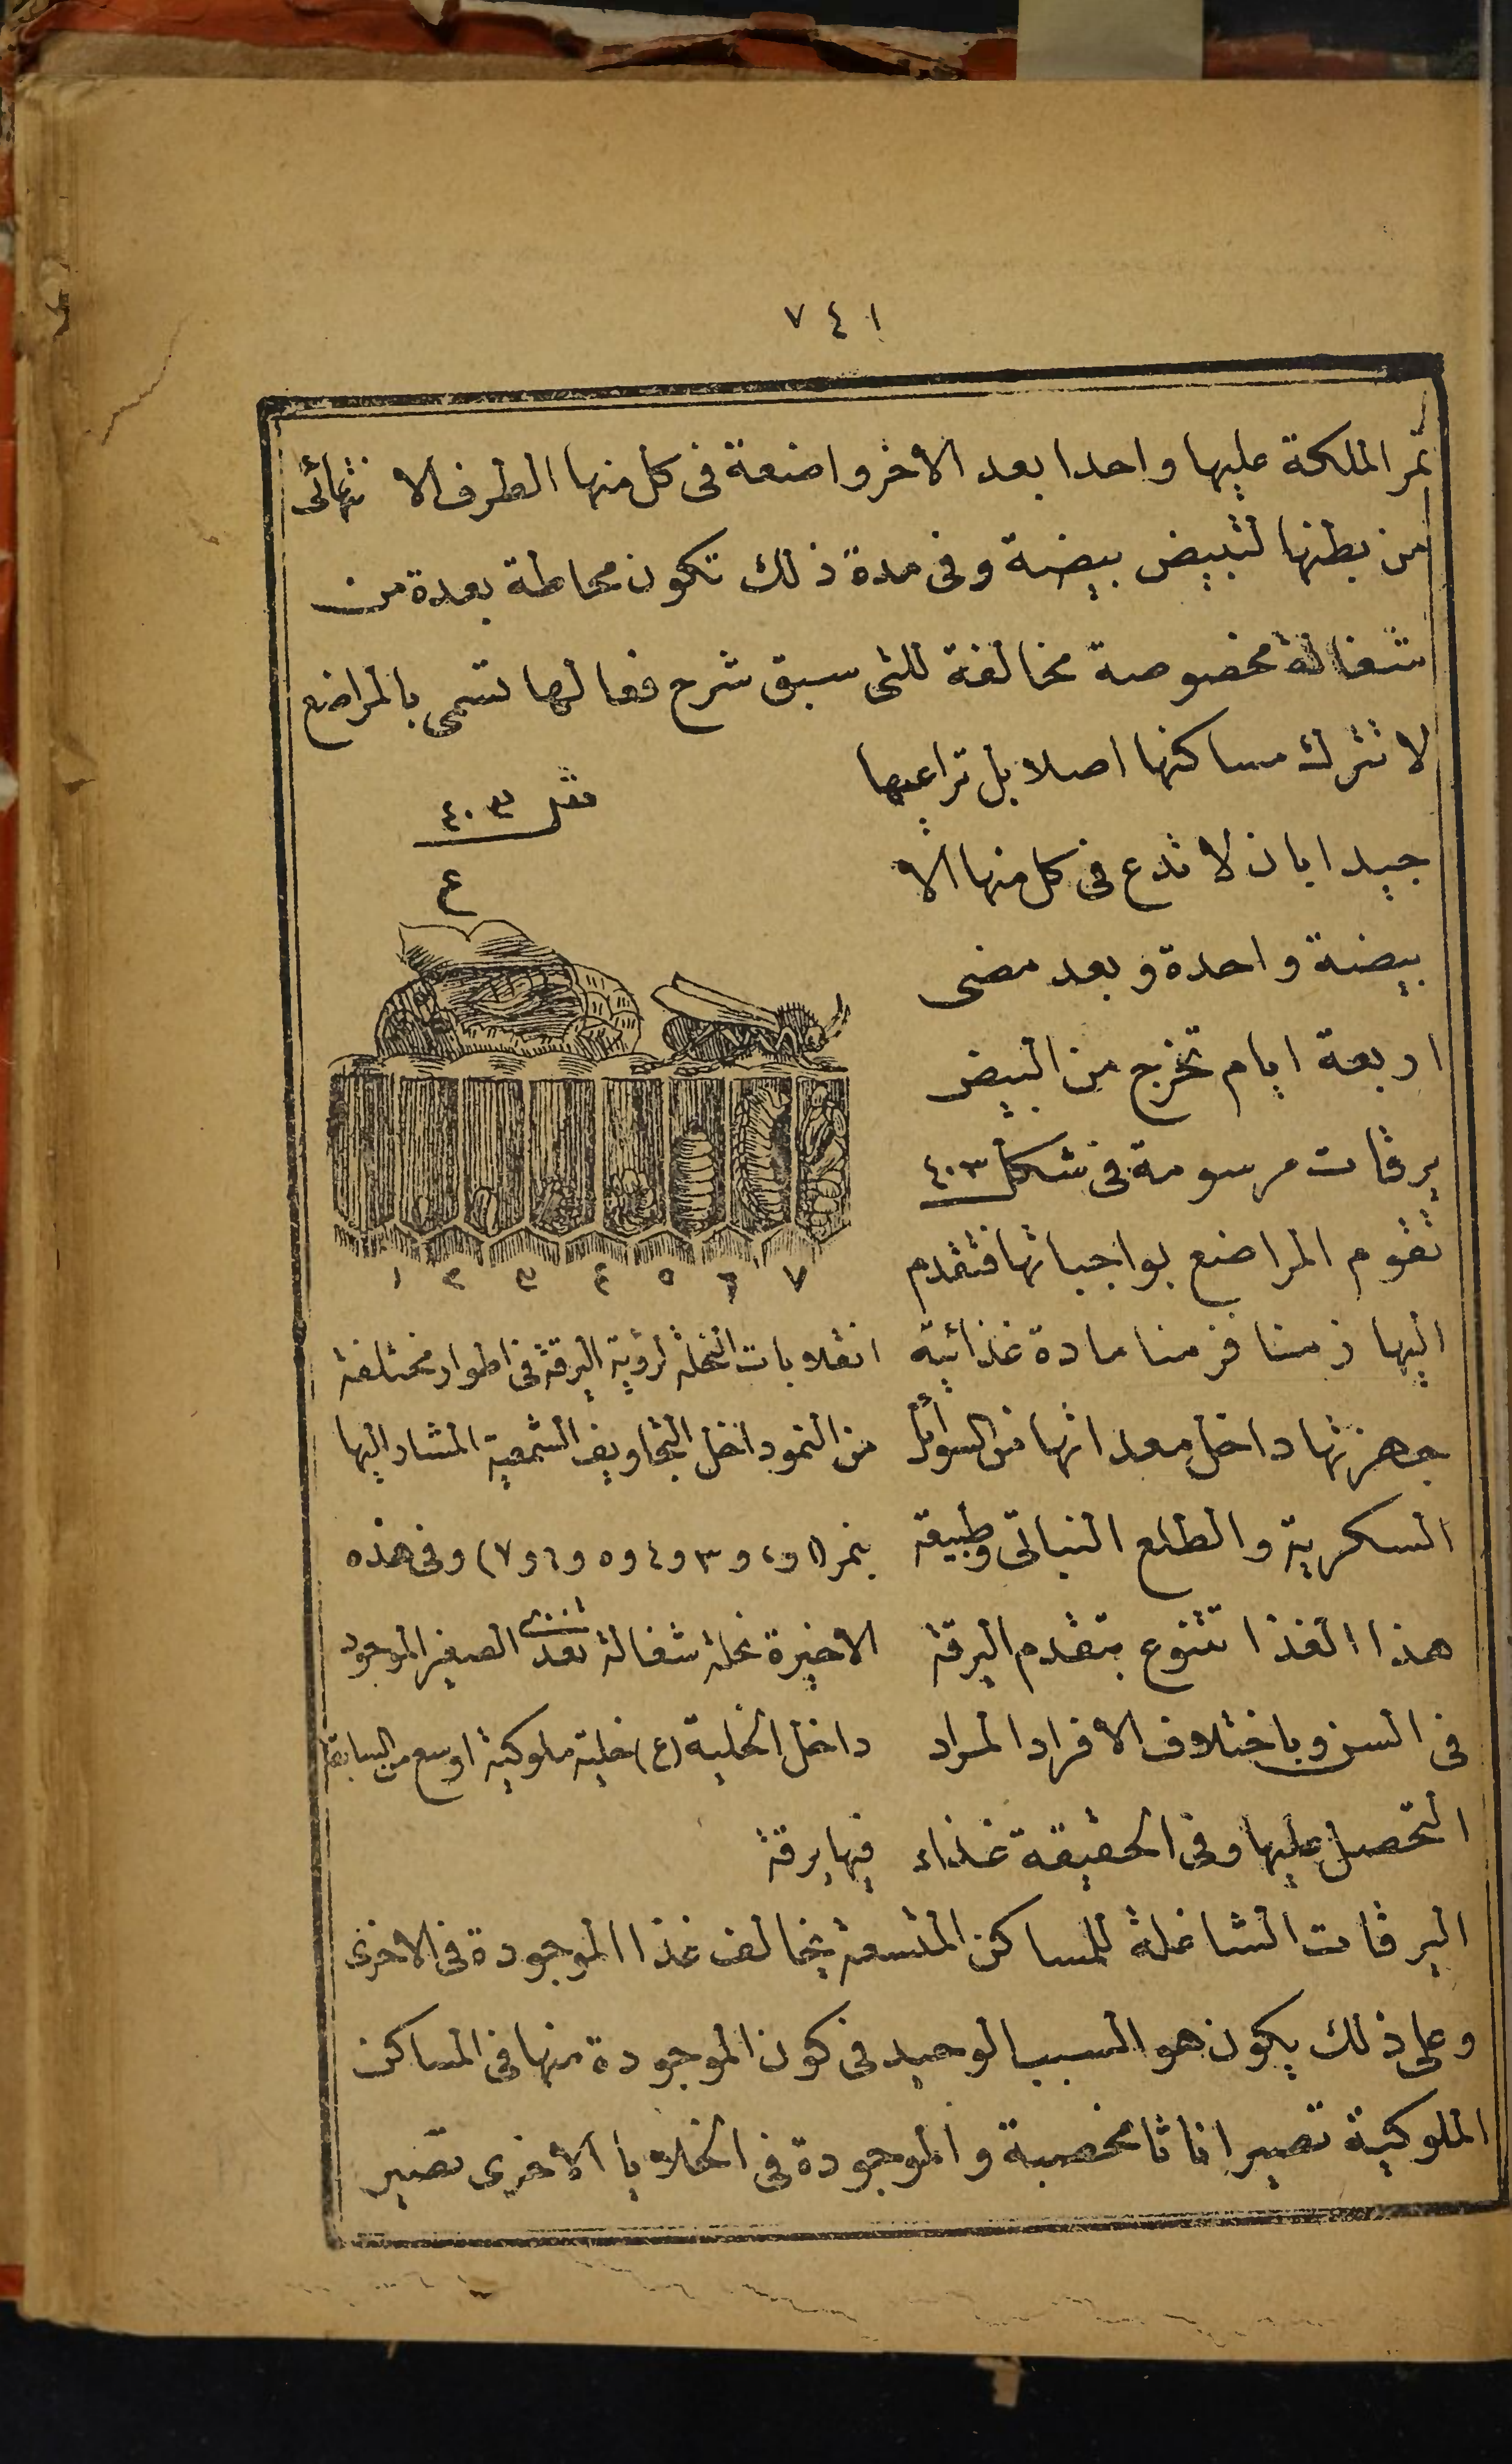 ٧٤١
تمر الملكة عليها واحدا بعد الاخر واضعة فى كل منها الطرف الانتهائى
من بطنها لتبيض بيضة وفى مدة ذلك تكون محاطة بعدة من
شغالة مخصوصة مخالفة للتى سبق شرح فعالها تسمى بالمراضع
لا تترك مساكنها اصلا بل تراعيها
جيدا بان لا تدع فى كل منها الا
بيضة واحدة وبعد مضى
اربعة ايام تخرج من البيض
يرقات مرسومة فى شكل ٤٠٣
تقوم المراضع بواجباتها فتقدم
اليها زمنا فزمنا مادة غذائية
جهزتها داخل معداتها من السوائل
السكرية والطلع النباتى وطبيعة
هذا الغذا تتنوع بتقدم اليرقة
فى السن وباختلاف الافراد المراد
التحصل عليها وفى الحقيقة غذاء
شكل ٤٠٣
ع
١ ٢ ٣ ٤ ٥ ٦ ٧
انقلابات النحلة لرؤية اليرقة فى اطوار مختلفة
من النمو داخل التجاويف الشمعية المشار اليها
بنمر (١ و٢ و٣ و٤ و٥ و٦ و٧) وفى هذه
الاخيرة نحلة شغالة تغذى الصغير الموجود
داخل الخلية (ع) خلية ملوكية اوسع من السابقة
فيها يرقة
اليرقات الشاغلة للمساكن المتسعة يخالف غذا الموجودة فى الاخرى
وعلى ذلك يكون هو السبب الوحيد فى كون الموجودة منها فى المساكن
الملوكية تصير اناثا مخصبة والموجودة فى الخلايا الاخرى تصير